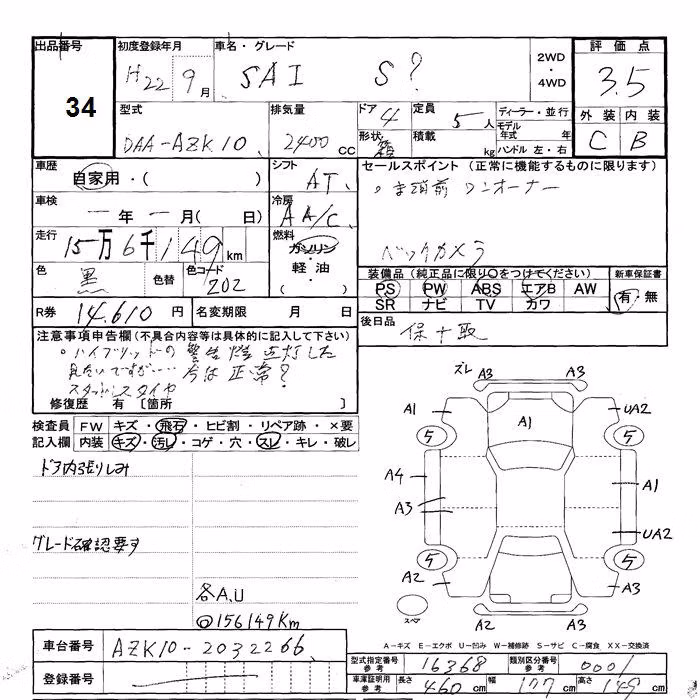 出品番号
34
初度登録年月
H22 9月
車名・グレード
SAI S?
2WD
・
4WD
評価点
3.5
型式
DAA-AZK10
排気量
2400 CC
ドア 4
形状 箱
定員 5人
積載 kg
ディーラー・並行
モデル年式 年
ハンドル 左・右
外装 内装
C B
車歴
自家用・( )
シフト
AT
車検
一年一月( 日)
冷房
AA/C
走行
15万6千149km
燃料
ガソリン・
軽油・
( )
色
黒
色替
色コード
202
R券 14,610円
名変期限 月 日
セールスポイント (正常に機能するものに限ります)
ワンオーナー
バックカメラ
装備品 (純正品に限り○をつけてください)
PS PW ABS エアB AW
SR ナビ TV カワ
新車保証書
有・無
後日品
保+取
注意事項申告欄(不具合内容等は具体的に記入して下さい)
○ハイブリッドの警告灯点灯した
見たいですが… 今は正常?
スタッドレスタイヤ
修復歴 有 [箇所 ]
検査員 FW キズ・飛石・ヒビ割・リペア跡・×要
記入欄 内装 キズ・汚レ・コゲ・穴・スレ・キレ・破レ
ドア内張りしみ
グレード確認要す
各A,U
◎156149Km
ズレ A3 A3
A1 A1 UA2
5 5
A4 A1
A3 UA2
5 5
A2 A3
スペア A2 A3
A-キズ E-エクボ U-凹み W-補修跡 S-サビ C-腐食 XX-交換済
車台番号 AZK10-2032266
登録番号
型式指定番号 参考 16368
類別区分番号 参考 0001
車庫証明用 参考 長さ 460cm 幅 177cm 高さ 149cm